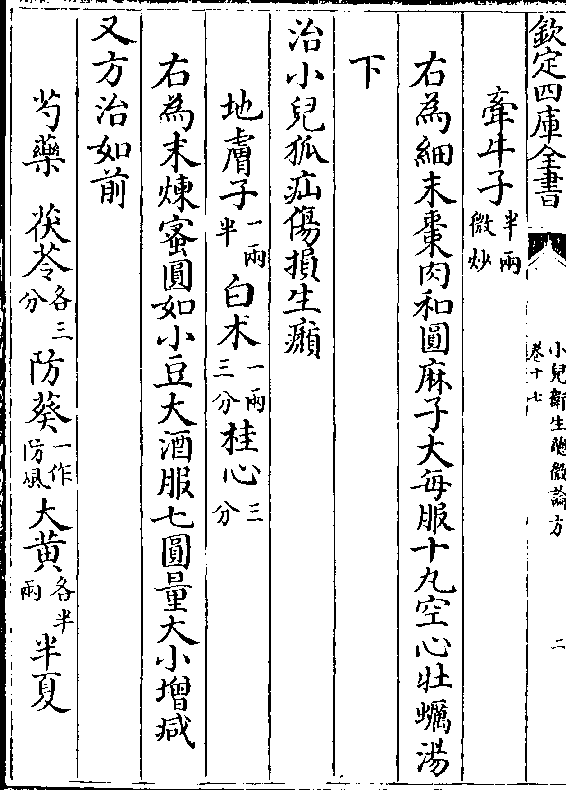 欽定四庫全書
小兒衛生總微論方
卷十七
二
牽牛子半兩微炒
右為細末棗肉和圓麻子大每服十丸空心牡蠣湯
下
治小兒狐疝傷損生㿗
地膚子一兩半白术一兩三分桂心三分
右為末煉蜜圓如小豆大酒服七圓量大小增減
又方治如前
芍藥 茯苓各三分防葵一作防風大黄各半兩半夏